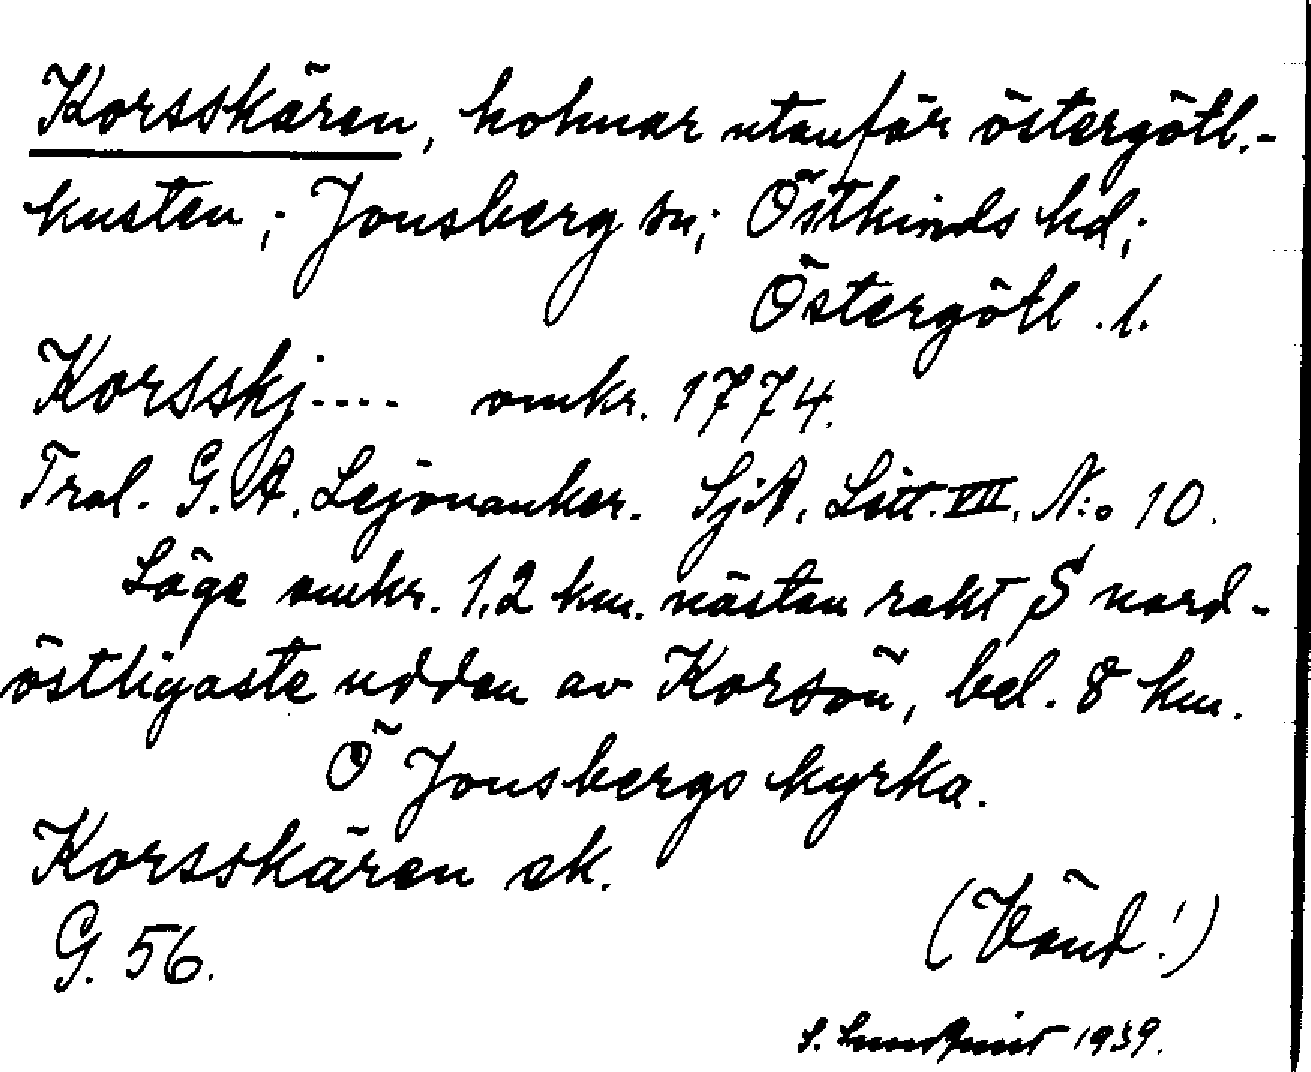 Korsskären, holmar utanför östergötl.-
kusten; Jonsberg sn; Östkinds hd;
Östergötl. l.
Korsskj.... omkr. 1774.
Tral. G. A. Lejonanker. SjA. Litt. VIII. N:o 10.
Läge omkr. 1,2 km. nästan rakt S nord-
östligaste udden av Korsön, bel. 8 km.
Ö Jonsbergs kyrka.
Korsskären ek.
G. 56.
(Vänd!)
S. Lundqvist 1939.